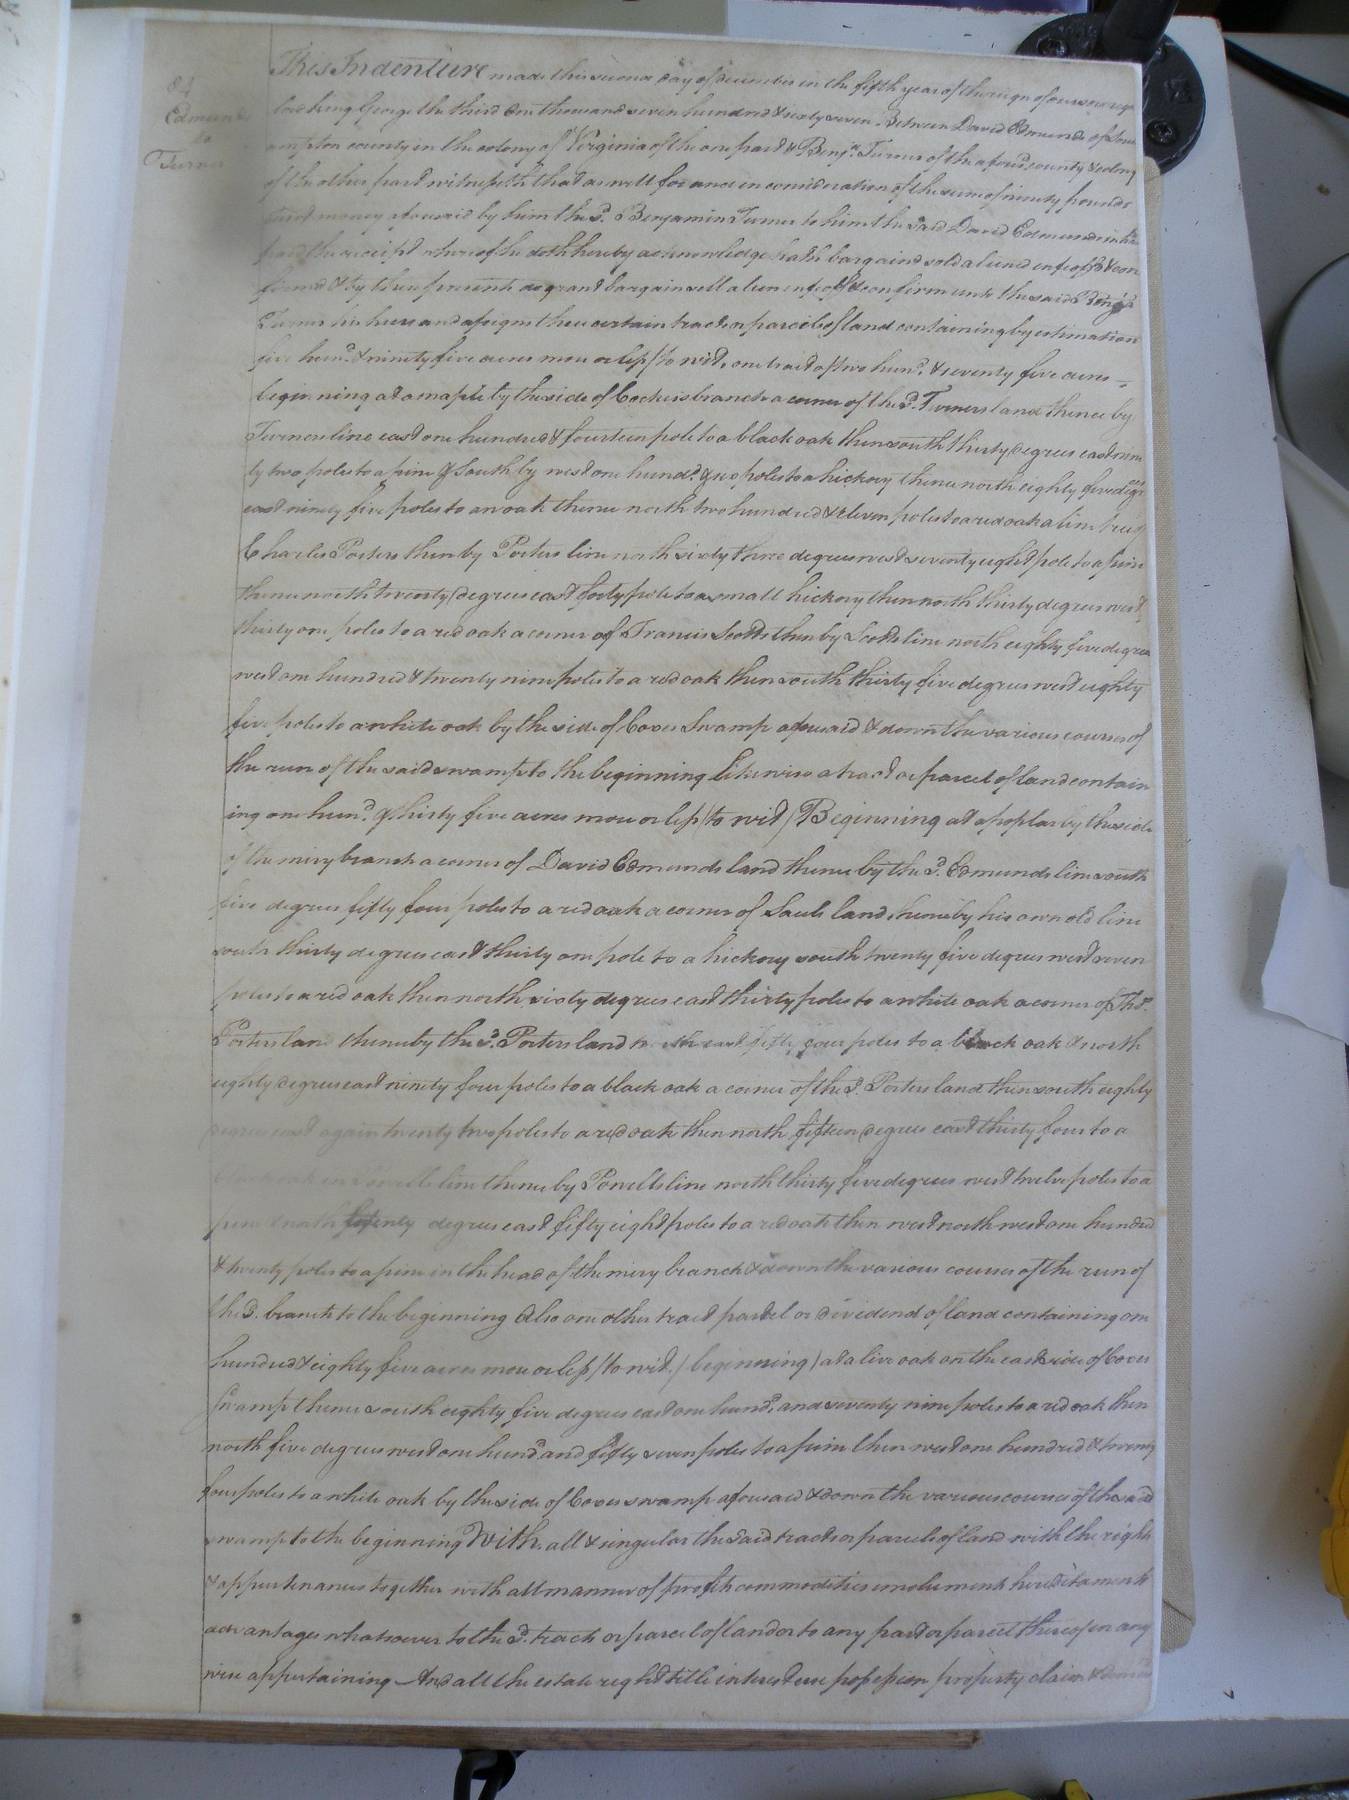 84
Edmunds
to
Turner
This Indenture made this second day of December in the fifth year of the reign of our sovereign
lord king George the third One thousand seven hundred & sixty seven. Between David Edmunds of South
ampton county in the colony of Virginia of the one part & Benja. Turner of the afores. county & colony
of the other part witnesseth that as well for and in consideration of the sum of ninety pounds
money aforesaid by him the sd. Benjamin Turner to him the said David Edmunds in hand
paid the receipt whereof he doth hereby acknowledge hath bargained sold aliened enfeoffd & con
firmed & by these presents do grant bargain sell alien enfeoff & confirm unto the said Benja.
Turner his heirs and assigns three certain tracts or parcels of land containing by estimation
five hund. & ninety five acres more or less / to wit, one tract of two hund. & seventy five acres
beginning at a maple by the side of branch a corner of the sd. Turners land thence by
Turners line east one hundred & fourteen pole to a black oak then south thirty degrees east nine
ty two poles to a pine & South by west one hundd. & two poles to a hickory thence north eighty five degrs
east ninety five poles to an oak thence north two hundred & eleven poles to a red oak a line tree of
Charles Porters then by Porters line north sixty three degrees west seventy eight pole to a pine
thence north twenty degrees east forty pole to a small hickory then north thirty degrees west
thirty one poles to a red oak a corner of Francis Scotts then by Scotts line north eighty five degrees
west one hundred & twenty nine poles to a red oak then south thirty five degrees west eighty
five poles to a white oak by the side of Coxes Swamp aforesaid & down the various courses of
the run of the said swamp to the beginning Likewise a tract or parcel of land contain
ing one hund. & thirty five acres more or less / to wit / Beginning at a poplar by the side
of the miry branch a corner of David Edmunds land thence by the sd. Edmunds line south
five degrees fifty four poles to a red oak a corner of Sauls land, thence by his own old line
south thirty degrees east thirty one pole to a hickory south twenty five degrees west seven
poles to a red oak then north sixty degrees east thirty poles to a white oak a corner of Thos.
Porters land thence by the sd. Porters land north east fifty four poles to a black oak & north
eighty degrees east ninety four poles to a black oak a corner of the sd. Porters land then south eighty
degrees east again twenty two poles to a red oak then north fifteen degrees east thirty four to a
black oak in Powells line thence by Powells line north thirty five degrees west twelve poles to a
pine & north degrees east fifty eight poles to a red oak then west north west one hundred
& twenty poles to a pine in the head of the miry branch & down the various courses of the run of
the sd. branch to the beginning Also one other tract parcel or dividend of land containing one
hundred & eighty five acres more or less / to wit / beginning / at a live oak on the east side of Coxes
swamp thence south eighty five degrees east one hund. and seventy nine poles to a red oak then
north five degrees west one hund. and fifty seven poles to a pine then west one hundred & twenty
four poles to a white oak by the side of Coxes swamp aforesaid & down the various courses of the said
swamp to the beginning With all & singular the said tracts or parcels of land with the rights
& appurtenances together with all manner of profits commodities emoluments hereditaments
advantages whatsoever to the sd. tracts or parcel of land or to any part or parcel thereof in any
wise appertaining And all the estate right title interest use possession property claim & demand